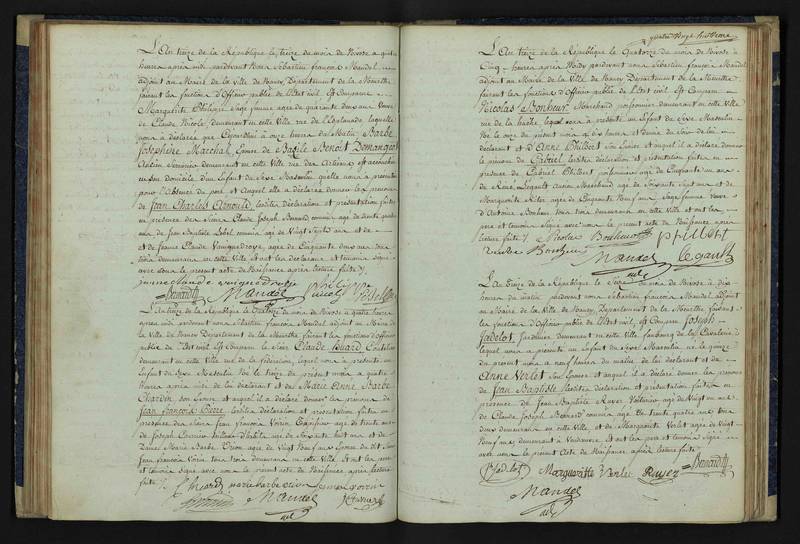 L'An treize de la République le treize du mois de Nivose a quatre
heures après midi pardevant Nous Sébastien françois Mandel
adjoint au Maire de la Ville de Nancy Département de la Meurthe
faisant les fonctions d'Officier public de l'Etat civil Est Comparue
Marguerite Philippe Sage femme agée de quarante deux ans Veuve
de Claude Nicole demeurant en cette Ville rue de l'Esplanade laquelle
nous à déclarée que Cejourdhui à onze heures du Matin Barbe
Josephine Marchal Epouse de Bazile Benoît Domangeot
demeurant en cette Ville rue des Artisans est accouchée
en son domicile d'un Enfant du Sexe Masculin quelle nous a présenté
pour l'absence du pere et Auquel elle a déclarée donner les prénoms
de Jean Charles Arnould lesdites déclaration et présentation faites
en presence des Sieurs Claude Joseph Bernard commis agé de trente quatre
ans de Jean Baptiste Lobel commis agé de Vingt Sept ans et de
et de femme Claude agée de Cinquante deux ans tous
trois demeurans en cette Ville et ont les declarans et temoins signé
avec nous le présent acte de Naissance après lecture faite
Bernard Mandel
adt
L'An treize de la République le Quatorze du mois de Nivose à quatre heures
après midi pardevant nous Sébastien françois Mandel adjoint au Maire de
la Ville de Nancy Département de la Meurthe faisant les fonctions d'Officier
public de l'Etat civil Est Comparu le Sieur Claude Huard
demeurant en cette Ville rue de la fédération, lequel nous à présenté un
Enfant du Sexe Masculin Né le treize du présent mois a quatre
heures après midi de lui declarant et de Marie Anne Barbe
Chardin son Epouse et auquel il a déclaré donner les prénoms de
Jean françois Pierre lesdites déclaration et présentation faites en
presence des Sieurs Jean françois Voirin Tapissier agé de trente ans
de Joseph agé de Soixante huit ans et de
Dame Marie Barbe agée de Vingt Neuf ans Epouse du dit Sieur
Jean françois Voirin tous trois demeurans en cette Ville Et ont les pere
et temoins signé avec nous le présent acte de Naissance après lecture
faite
C huard marie barbe jean voirin
Mandel
adt
quatre vingt
L'An treize de la République le Quatorze du mois de Nivose à
Cinq heures après Midy pardevant nous Sébastien françois Mandel
adjoint au Maire de la Ville de Nancy Département de la Meurthe
faisant les fonctions d'Officier public de l'Etat civil Est Comparu
Nicolas Bonheur Marchand poissonnier demeurant en cette Ville
rue de la hache, lequel nous à présenté un Enfant du Sexe Masculin
Né le onze du présent mois a dix heures et demie du Soir de lui
declarant et d'Anne Philbert son Epouse et auquel il a déclaré donner
le prénom de Gabriel lesdites déclaration et présentation faites en
presence de Gabriel Philbert poissonnier agé de Cinquante un ans
de René Legault Ancien Marchand agé de Soixante Sept ans et de
Marguerite Ritter agée de Cinquante Neuf ans Sage femme Veuve
d'Antoine Bonheur tous trois demeurans en cette Ville et ont les
pere et temoins Signé avec nous le présent acte de Naissance après
lecture faite Nicolas Bonheur p philbert
Mandel Legault
adt
L'An Treize de la République le Seize du mois de Nivose à dix
heures du matin pardevant nous Sébastien françois Mandel adjoint
au Maire de la Ville de Nancy, Département de la Meurthe faisant
les fonctions d'Officier public de l'Etat civil, Est Comparu Joseph
Jadelot Jardinier demeurant en cette Ville faubourg de la
lequel nous a présenté un Enfant du Sexe Masculin né le quinze
du présent mois à neuf heures du matin de lui declarant et de
Anne Verlet Son Epouse et auquel il a déclaré donner les prénoms
de Jean Baptiste lesdites déclaration et présentation faites en
presence de Jean Baptiste Ruyer agé de Vingt un ans
de Claude Joseph Bernard commis agé de trente quatre ans tous
deux demeurans en cette Ville et de Marguerite Verlet agée de Vingt
Neuf ans, demeurant à Vandoeuvre Et ont les pere et temoins Signé
avec nous le présent Acte de Naissance après lecture faite
J Jadelot Margueritte Verlet Ruyer Bernard
Mandel
adt